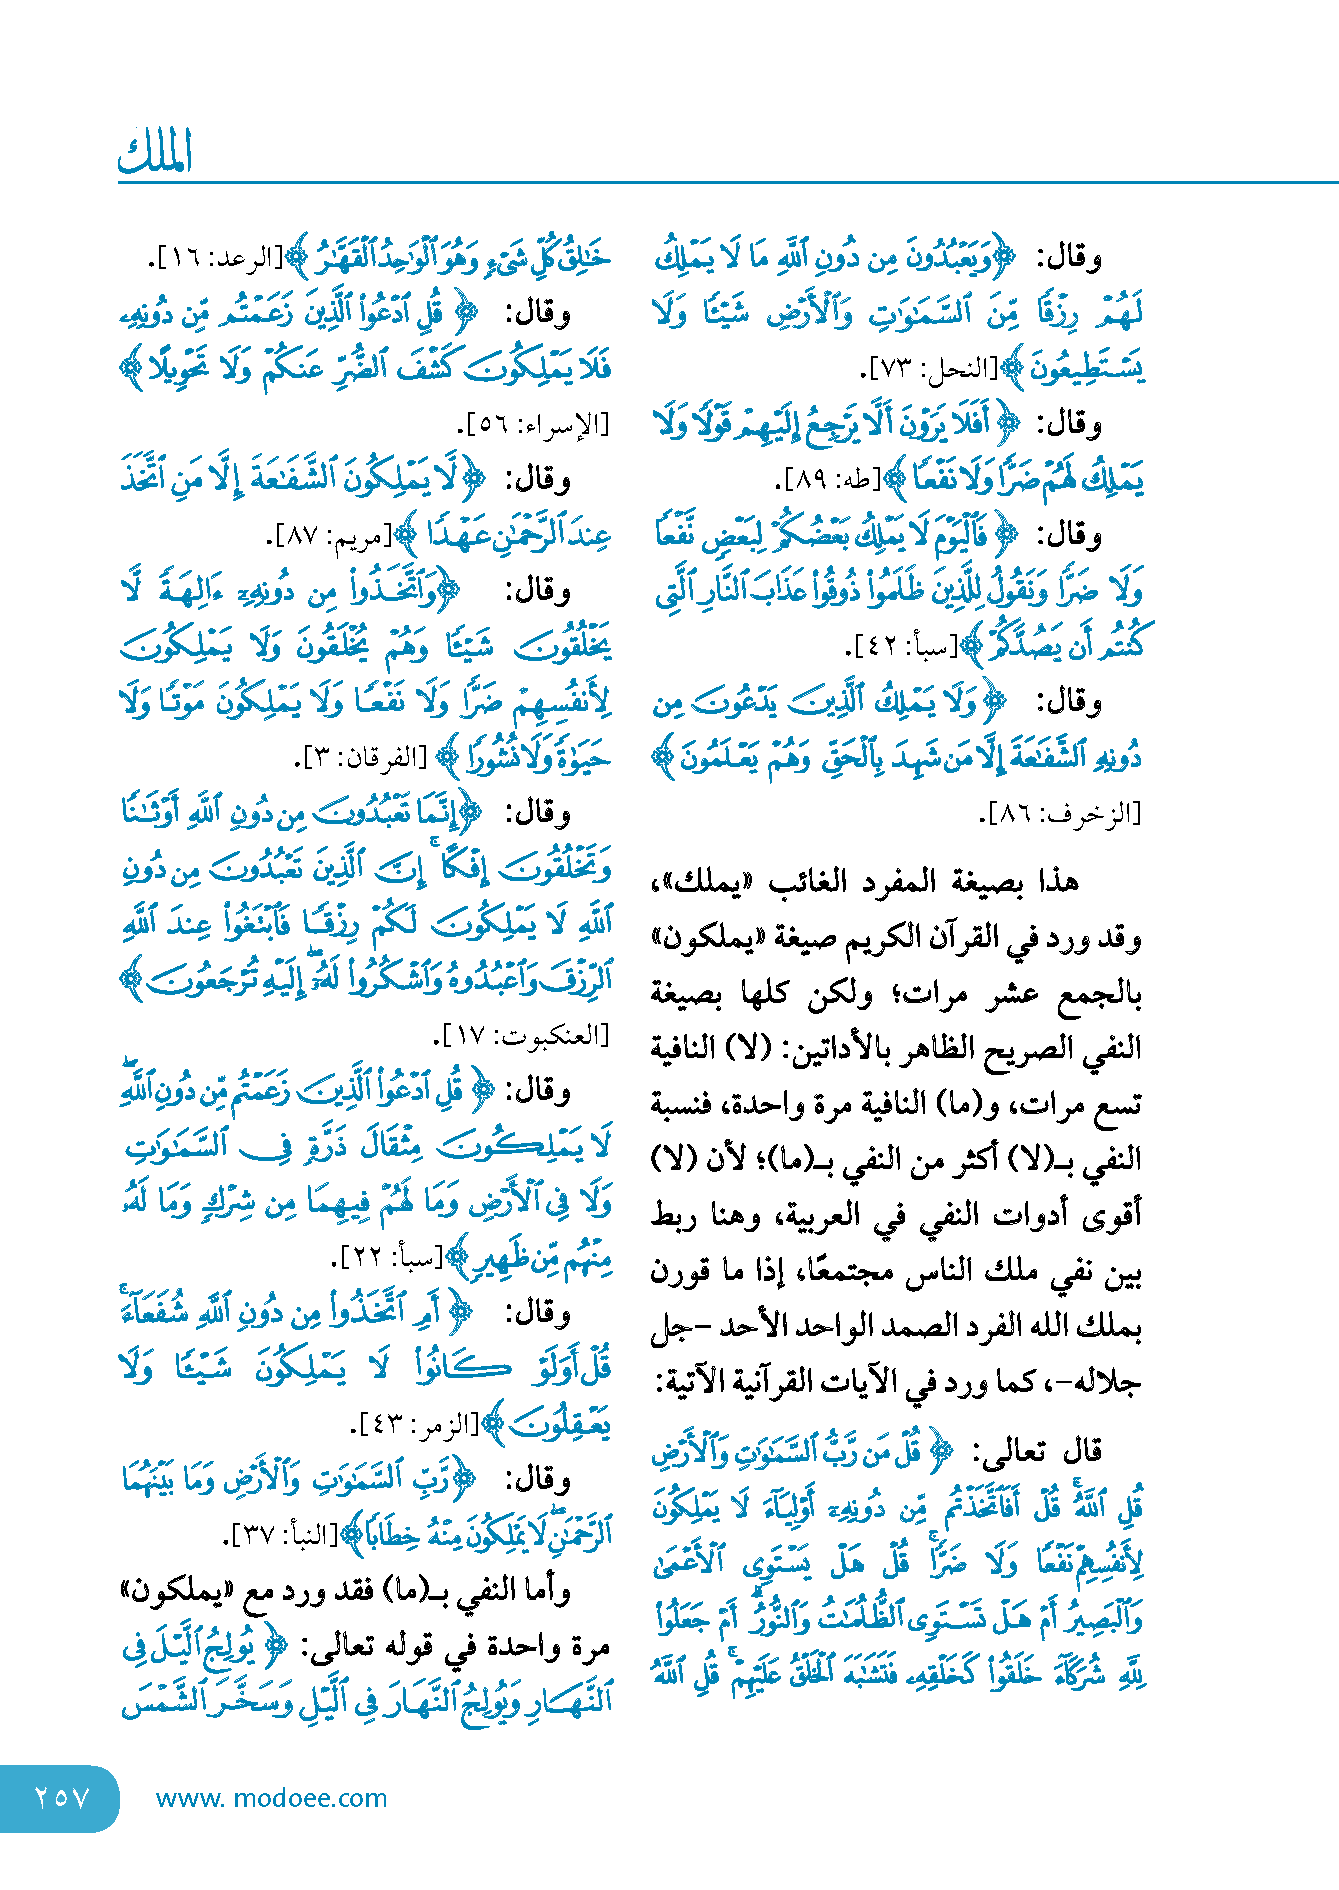 الملك
وقال: ﴿وَيَعْبُدُونَ مِن دُونِ ٱللَّهِ مَا لَا يَمْلِكُ
لَهُمْ رِزْقًا مِّنَ ٱلسَّمَـٰوَٰتِ وَٱلْأَرْضِ شَيْـًٔا وَلَا
يَسْتَطِيعُونَ﴾[النحل: ٧٣].
وقال: ﴿أَفَلَا يَرَوْنَ أَلَّا يَرْجِعُ إِلَيْهِمْ قَوْلًا وَلَا
يَمْلِكُ لَهُمْ ضَرًّا وَلَا نَفْعًا﴾[طه: ٨٩].
وقال: ﴿فَٱلْيَوْمَ لَا يَمْلِكُ بَعْضُكُمْ لِبَعْضٍ نَّفْعًا
وَلَا ضَرًّا وَنَقُولُ لِلَّذِينَ ظَلَمُوا۟ ذُوقُوا۟ عَذَابَ ٱلنَّارِ ٱلَّتِى
كُنتُم أَن يَصُدَّكُمْ﴾[سبأ: ٤٢].
وقال: ﴿وَلَا يَمْلِكُ ٱلَّذِينَ يَدْعُونَ مِن
دُونِهِ ٱلشَّفَـٰعَةَ إِلَّا مَن شَهِدَ بِٱلْحَقِّ وَهُمْ يَعْلَمُونَ﴾
[الزخرف: ٨٦].
هذا بصيغة المفرد الغائب «يملك»،
وقد ورد في القرآن الكريم صيغة «يملكون»
بالجمع عشر مرات؛ ولكن كلها بصيغة
النفي الصريح الظاهر بالأداتين: (لا) النافية
تسع مرات، و(ما) النافية مرة واحدة، فنسبة
النفي بـ(لا) أكثر من النفي بـ(ما)؛ لأن (لا)
أقوى أدوات النفي في العربية، وهنا ربط
بين نفي ملك الناس مجتمعًا، إذا ما قورن
بملك الله الفرد الصمد الواحد الأحد -جل
جلاله-، كما ورد في الآيات القرآنية الآتية:
قال تعالى: ﴿قُلْ مَن رَّبُّ ٱلسَّمَـٰوَٰتِ وَٱلْأَرْضِ
قُلِ ٱللَّهُ ۚ قُلْ أَفَٱتَّخَذْتُم مِّن دُونِهِۦٓ أَوْلِيَآءَ لَا يَمْلِكُونَ
لِأَنفُسِهِمْ نَفْعًا وَلَا ضَرًّا ۚ قُلْ هَلْ يَسْتَوِى ٱلْأَعْمَىٰ
وَٱلْبَصِيرُ أَمْ هَلْ تَسْتَوِى ٱلظُّلُمَـٰتُ وَٱلنُّورُ ۗ أَمْ جَعَلُوا۟
لِلَّهِ شُرَكَآءَ خَلَقُوا۟ كَخَلْقِهِۦ فَتَشَـٰبَهَ ٱلْخَلْقُ عَلَيْهِمْ ۚ قُلِ ٱللَّهُ
خَـٰلِقُ كُلِّ شَىْءٍ وَهُوَ ٱلْوَٰحِدُ ٱلْقَهَّـٰرُ﴾[الرعد: ١٦].
وقال: ﴿قُلِ ٱدْعُوا۟ ٱلَّذِينَ زَعَمْتُم مِّن دُونِهِۦ
فَلَا يَمْلِكُونَ كَشْفَ ٱلضُّرِّ عَنكُمْ وَلَا تَحْوِيلًا﴾
[الإسراء: ٥٦].
وقال: ﴿لَّا يَمْلِكُونَ ٱلشَّفَـٰعَةَ إِلَّا مَنِ ٱتَّخَذَ
عِندَ ٱلرَّحْمَـٰنِ عَهْدًا﴾[مريم: ٨٧].
وقال: ﴿وَٱتَّخَذُوا۟ مِن دُونِهِۦٓ ءَالِهَةً لَّا
يَخْلُقُونَ شَيْـًٔا وَهُمْ يُخْلَقُونَ وَلَا يَمْلِكُونَ
لِأَنفُسِهِمْ ضَرًّا وَلَا نَفْعًا وَلَا يَمْلِكُونَ مَوْتًا وَلَا
حَيَوٰةً وَلَا نُشُورًا﴾ [الفرقان: ٣].
وقال: ﴿إِنَّمَا تَعْبُدُونَ مِن دُونِ ٱللَّهِ أَوْثَـٰنًا
وَتَخْلُقُونَ إِفْكًا ۚ إِنَّ ٱلَّذِينَ تَعْبُدُونَ مِن دُونِ
ٱللَّهِ لَا يَمْلِكُونَ لَكُمْ رِزْقًا فَٱبْتَغُوا۟ عِندَ ٱللَّهِ
ٱلرِّزْقَ وَٱعْبُدُوهُ وَٱشْكُرُوا۟ لَهُۥٓ ۖ إِلَيْهِ تُرْجَعُونَ﴾
[العنكبوت: ١٧].
وقال: ﴿قُلِ ٱدْعُوا۟ ٱلَّذِينَ زَعَمْتُم مِّن دُونِ ٱللَّهِ ۖ
لَا يَمْلِكُونَ مِثْقَالَ ذَرَّةٍ فِى ٱلسَّمَـٰوَٰتِ
وَلَا فِى ٱلْأَرْضِ وَمَا لَهُمْ فِيهِمَا مِن شِرْكٍ وَمَا لَهُۥ
مِنْهُم مِّن ظَهِيرٍ﴾[سبأ: ٢٢].
وقال: ﴿أَمِ ٱتَّخَذُوا۟ مِن دُونِ ٱللَّهِ شُفَعَآءَ ۚ
قُلْ أَوَلَوْ كَانُوا۟ لَا يَمْلِكُونَ شَيْـًٔا وَلَا
يَعْقِلُونَ﴾[الزمر: ٤٣].
وقال: ﴿رَّبِّ ٱلسَّمَـٰوَٰتِ وَٱلْأَرْضِ وَمَا بَيْنَهُمَا
ٱلرَّحْمَـٰنِ ۖ لَا يَمْلِكُونَ مِنْهُ خِطَابًا﴾[النبأ: ٣٧].
وأما النفي بـ(ما) فقد ورد مع «يملكون»
مرة واحدة في قوله تعالى: ﴿يُولِجُ ٱلَّيْلَ فِى
ٱلنَّهَارِ وَيُولِجُ ٱلنَّهَارَ فِى ٱلَّيْلِ وَسَخَّرَ ٱلشَّمْسَ
www. modoee.com
٢٥٧